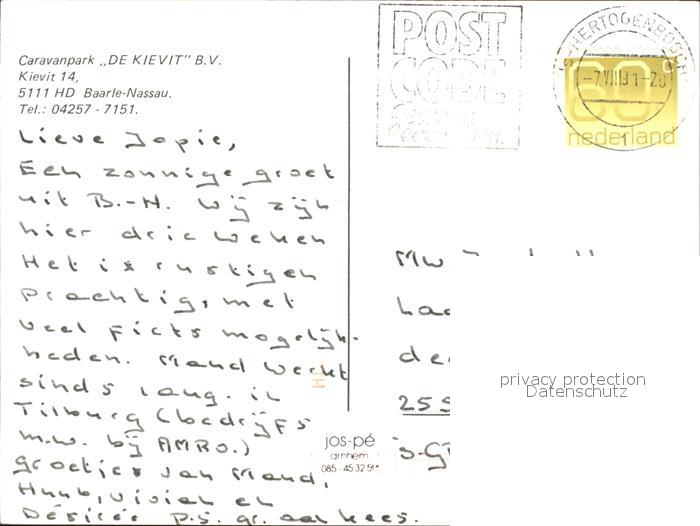 Caravanpark „DE KIEVIT" B.V.
Kievit 14,
5111 HD Baarle-Nassau.
Tel.: 04257 - 7151.
POST
CODE
's-HERTOGENBOSCH
60
nederland
1
Lieve Jopie,
Een zonnige groet
uit B.-N. Wij zijn
hier drie weken
Het is rustig en
prachtig, met
veel fiets mogelijk-
heden. Maud werkt
sinds 1 aug. in
Tilburg (bedrijfs
m.w. bij AMRO.)
groetjes van Maud,
Huub, Vivien en
Désirée p.s. gr. aan kees.
Mw
25
's-G
jos-pé
arnhem
085 - 45 32 51*
privacy protection
Datenschutz